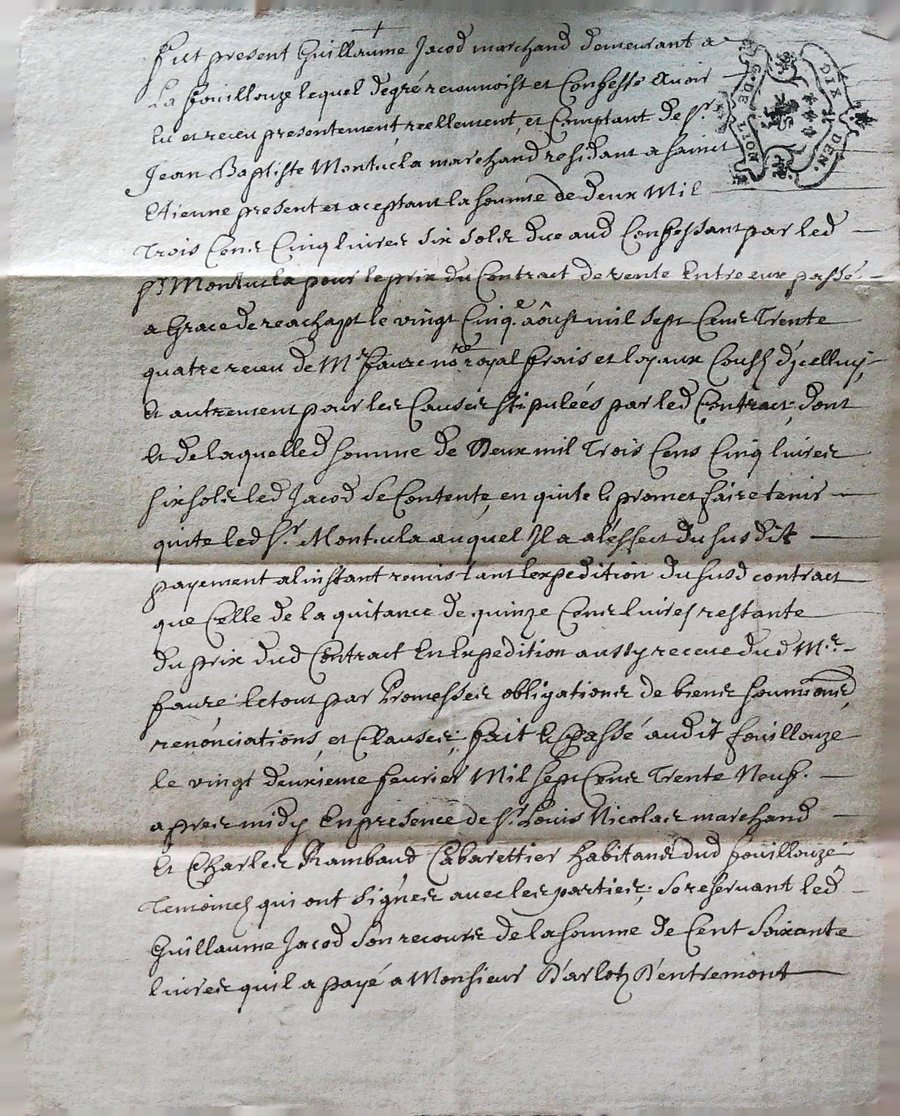 Fut present Guillaume Jacod marchand demeurant a
La fouillouze lequel de gré reconnoist et Confesse avoir
Eu et receu presentement, reellement, et Comptant de Sr.
Jean Baptiste Montucla marchand residant a Sainct
Etienne present et aceptant la somme de deux Mil
Trois Cens Cinq livres Six Sols due aud Confessant par led
Sr Montucla pour le prix du Contract de vente Entre eux passé
a Grace de reachapt le vingt Cinqe. aôust mil Sept Cens Trente
quatre receu de Mr. faure nore royal frais et loyaux Cousts d'ycelluy
Et autrement pour les Causes stipulées par led Contract; dont
Et de laquelled somme de Deux mil Trois Cens Cinq livres
Six sols led Jacod se Contente, en quite & promet faire tenir
quite led Sr. Montucla auquel Il a a l'effect du susdit
payement a l'instant remis tant l'expedition du susd contract
que Celle de la quitance de quinze Cens livres restante
Du prix dud Contract En Expedition aussy receue dud Mr.
faure le tout par Promesses obligations de biens soumions
renonciations, et Clauses; fait & Passé audit fouillouze
le vingt deuxieme fevrier Mil Sept Cens Trente Neuf.
apres midy En presence de Sr. Louis Nicolas marchand
Et Charles Rambaud Cabarettier habitans dud fouillouze
Temoins qui ont Signés avec les parties; Se reservant led
Guillaume Jacod son recours de la somme de Cent Soixante
livres qu'il a payé a Monsieur Darlotz D'entremont
G. DE LION
DIX DEN.